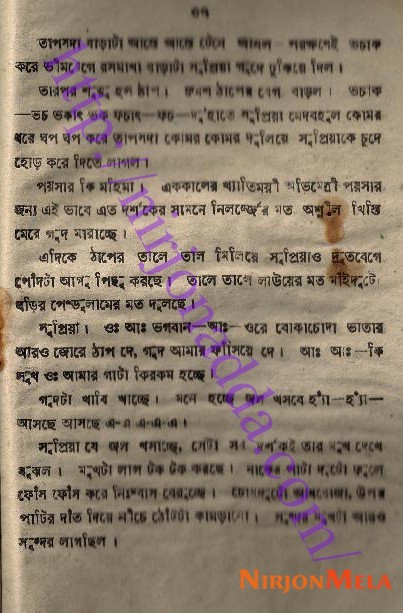 ৩৭
তাপসদা বাড়াটা আস্তে আস্তে টেনে আনল - পরক্ষণেই ভচাক
করে ভীমবেগে রসমাখা বাড়াটা সুপ্রিয়া গুদে ঢুকিয়ে দিল।
তারপর শুরু হল ঠাপ। ক্রমশ ঠাপের বেগ বাড়ল। ভচাক
—ভচ ভকাৎ ভক ফচাৎ—ফচ—দু'হাতে সুপ্রিয়া মেদবহুল কোমর
ধরে ঘপ ঘপ করে তাপসদা কোমর কোমর দুলিয়ে সুপ্রিয়াকে চুদে
হোড় করে দিতে লাগল।
পয়সার কি মহিমা। এককালের খ্যাতিময়ী অভিনেত্রী পয়সার
জন্য এই ভাবে এত দর্শকের সামনে নির্লজ্জের মত অশ্লীল খিস্তি
মেরে গুদ মারাচ্ছে।
এদিকে ঠাপের তালে তাল মিলিয়ে সুপ্রিয়াও দ্রুতবেগে
পোঁদটা আগু পিছু করছে। তালে তালে লাউয়ের মত মাইদুটো
ঘড়ির পেন্ডুলামের মত দুলছে।
সুপ্রিয়া। ওঃ আঃ ভগবান—আঃ—ওরে বোকাচোদা ভাতার
আরও জোরে ঠাপ দে, গুদ আমার ফাসিয়ে দে। আঃ আঃ—কি
সুখ ওঃ আমার গাটা কিরকম হচ্ছে।
গুদটা খাবি খাচ্ছে। মনে হচ্ছে জল খসবে হ্যাঁ—হ্যাঁ—
আসছে আসছে এ-এ এ-এ-এ।
সুপ্রিয়া যে জল খসাচ্ছে, সেটা সব দর্শকই তার মুখ দেখে
বুঝল। মুখটা লাল টক টক করছে। নাকের পাটা দুটো ফুলে
ফোঁস ফোঁস করে নিঃশ্বাস বেরুচ্ছে। চোখদুটো আধবোজা, উপর
পাটির দাঁত দিয়ে নীচে ঠোঁটটা কামড়ানো। সুন্দর মুখটা আরও
সুন্দর লাগছিল।
http://nirjonadda.com/
NIRJONMELA